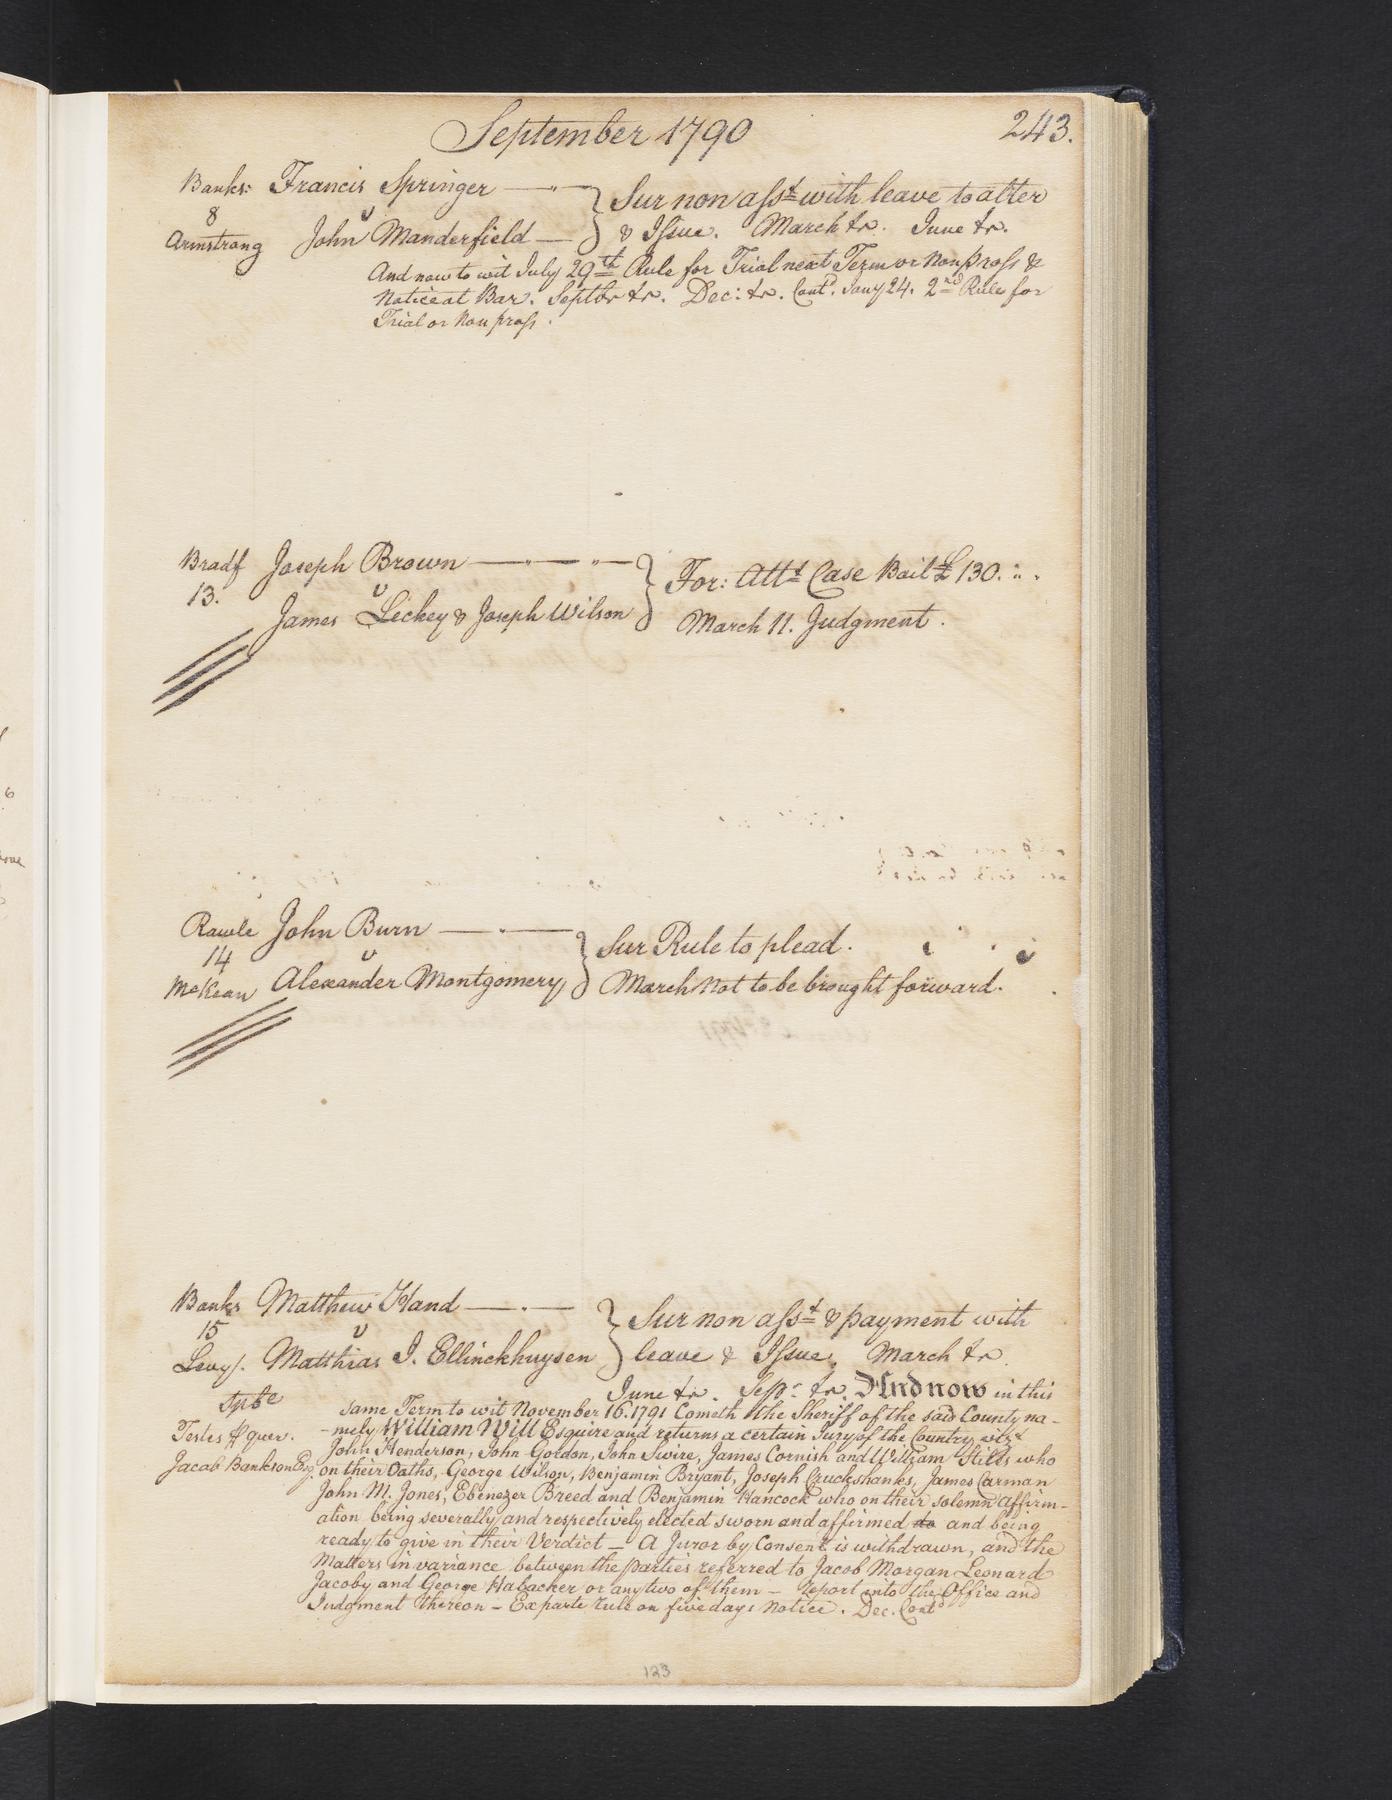 September 1790
243.
Banks: Francis Springer
8 v
Armstrong John Manderfield
Sur non asst with leave to alter
& Issue. March tr. June tr.
And now to wit July 29th Rule for Trial next Term or Non pross &
Notice at Bar. Septbr tr. Dec: tr. Contd. Jany 24. 2nd Rule for
Trial or Non pross.
Bradf Joseph Brown
13. v
James Leckey & Joseph Wilson
For: Attt Case Bail £130.
March 11. Judgment.
Rawle John Burn
14 v
McKean Alexander Montgomery
Sur Rule to plead.
March Not to be brought forward.
Banks Matthew Hand
15 v
Levy. Matthias I. Ellinckhuysen
Sur non asst & payment with
leave & Issue. March tr
June tr. Sepr tr. And now in this
same Term to wit November 16. 1791 Cometh the Sheriff of the said County na-
Testes pquer. -mely William Will Esquire and returns a certain Jury of the Country vizt
John Henderson, John Gordon, John Swire, James Cornish and William Stills who
Jacob Bankson Esq. on their Oaths, George Wilson, Benjamin Bryant, Joseph Cruckshanks, James Carman
John M. Jones, Ebenezer Breed and Benjamin Hancock who on their solemn Affirm-
ation being severally and respectively elected sworn and affirmed do and being
ready to give in their Verdict — A Juror by Consent is withdrawn, and the
Matters in variance between the parties referred to Jacob Morgan Leonard
Jacoby and George Habacker or any two of them — report into the Office and
Judgment thereon — Ex parte rule on five days Notice. Dec. Contd
123